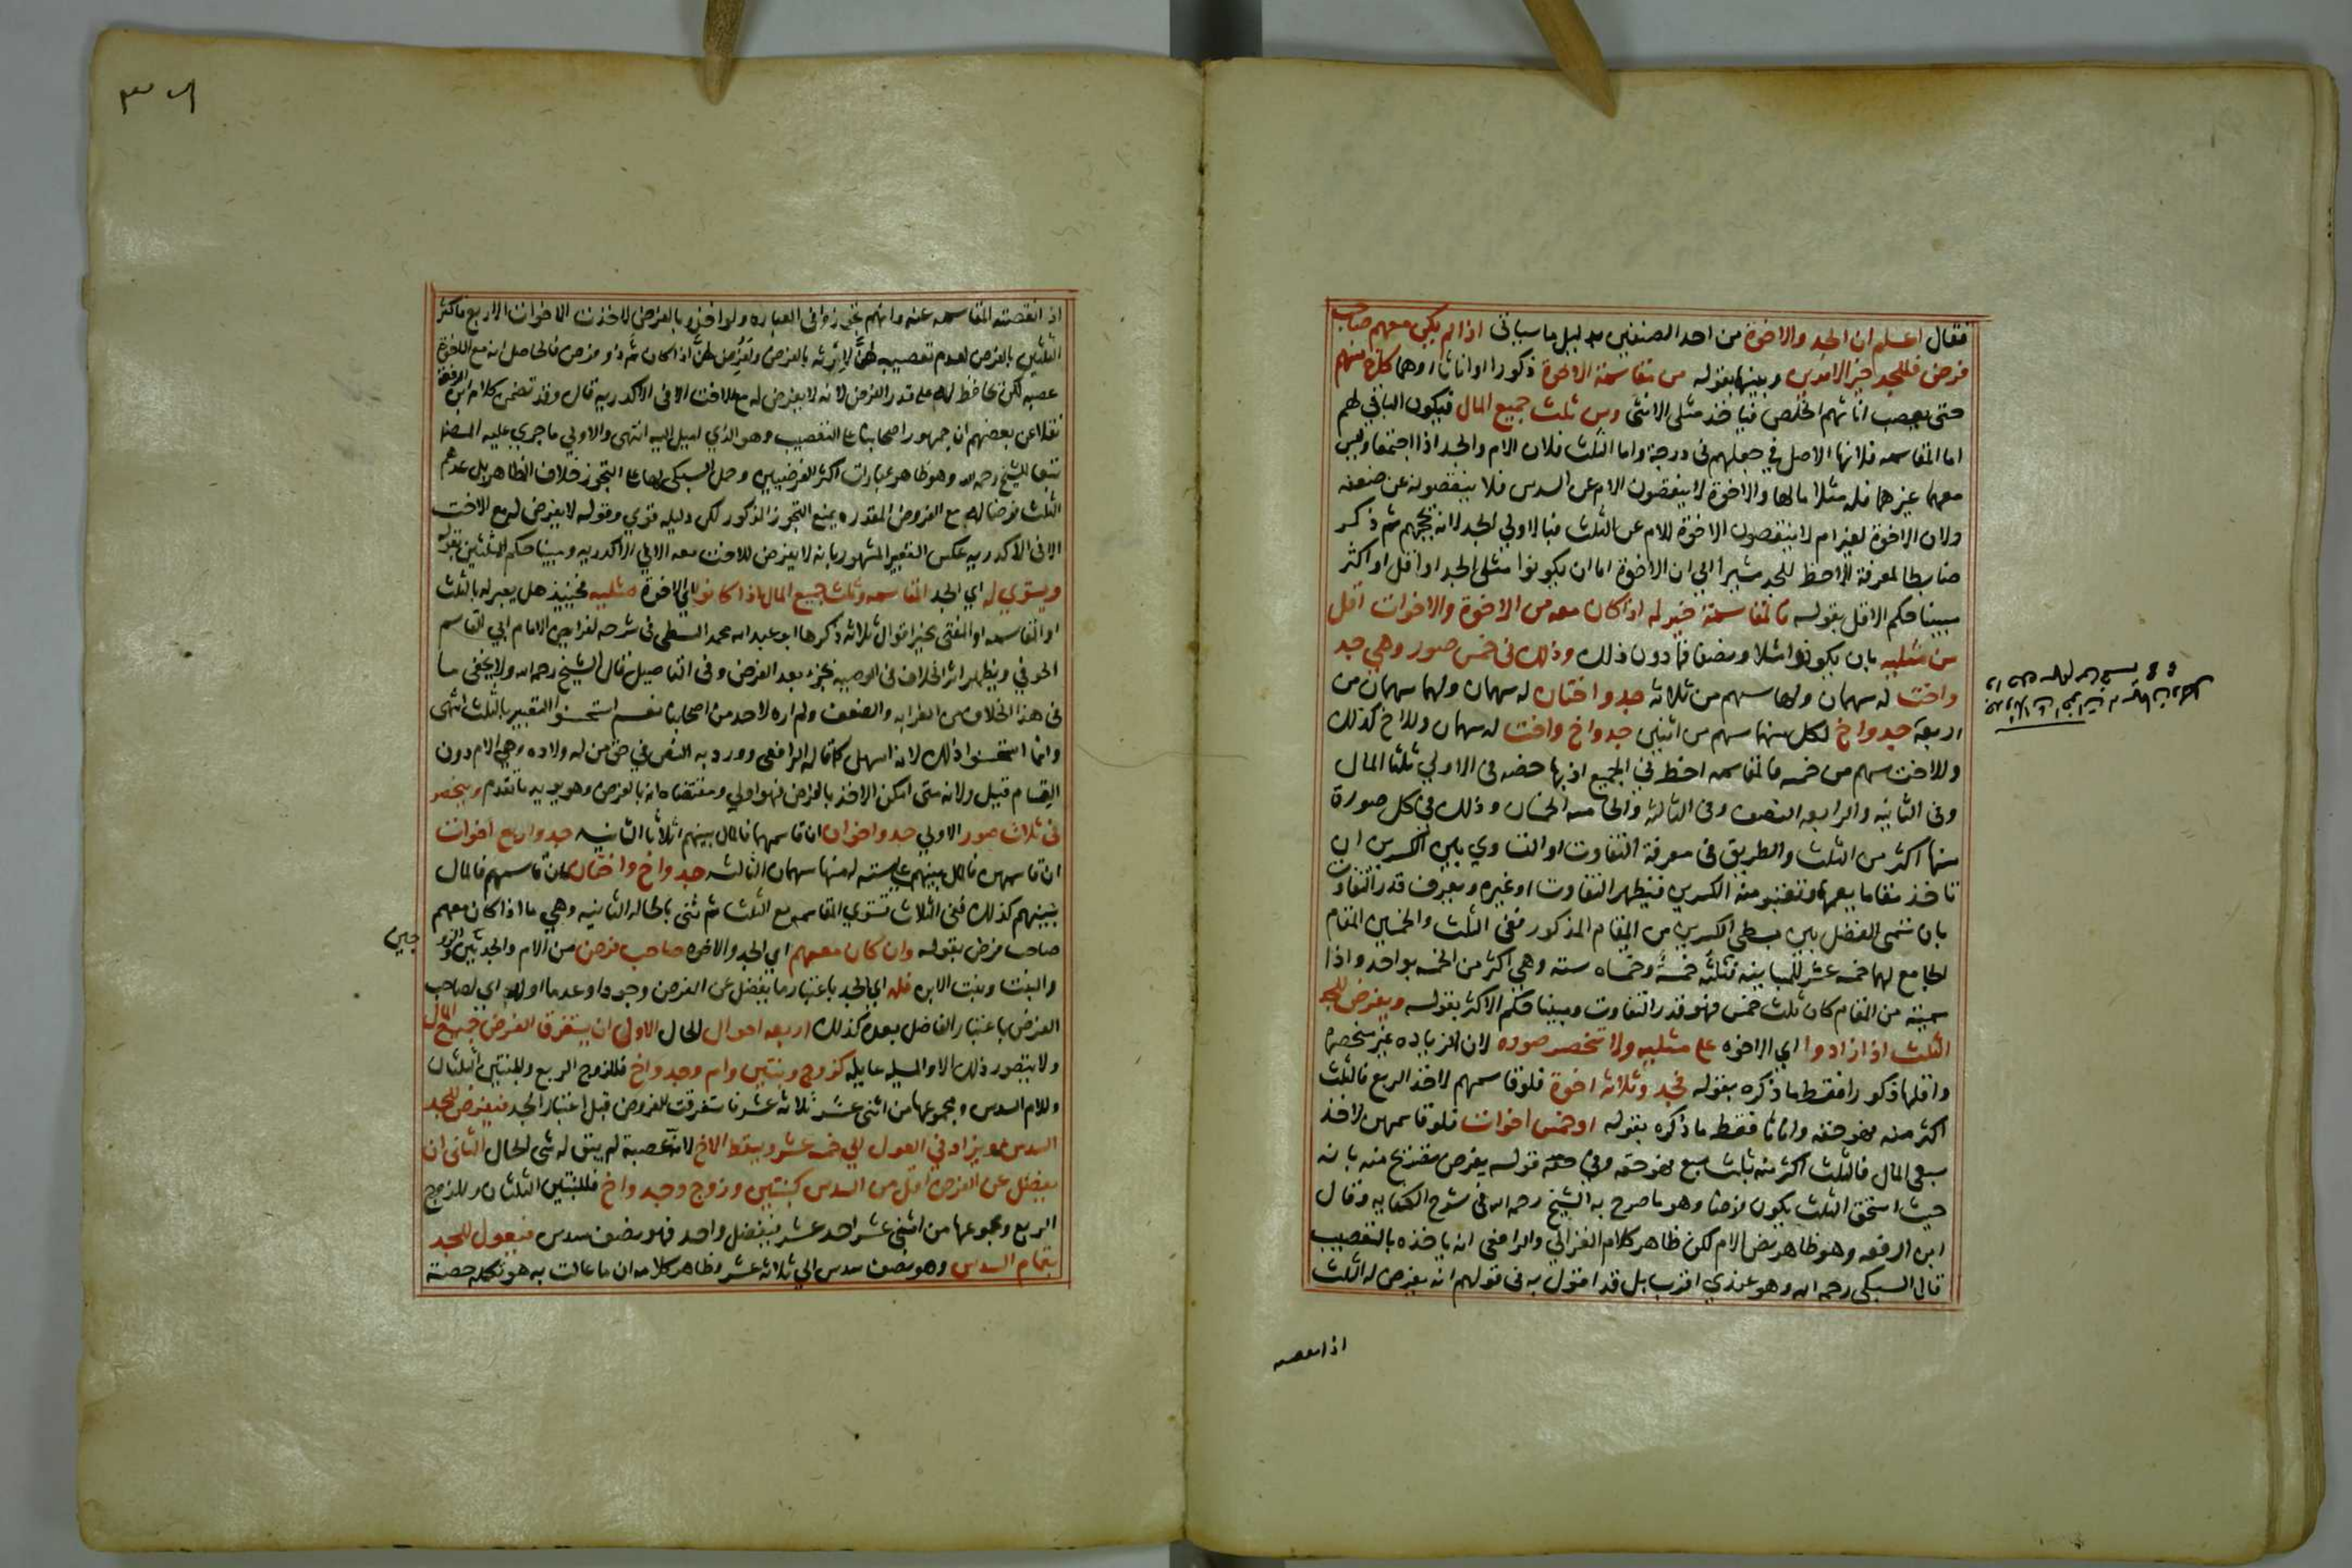 فقال اعلم ان الجد والاخوة من احد الصنفين بدليل ما سياتى اذا لم يكن معهم صاحب
فرض فللجد خير الامرين وبينهما بقوله من مقاسمة الاخوة ذكورا او اناثا او هما كاخ منهم
حتى يعصب اناثهم الخلص فياخذ مثلى الانثى وبين ثلث جميع المال فيكون الباقي لهم
اما المقاسمه فلانها الاصل في جعلهم فى درجة واما الثلث فلان الام والجد اذا اجتمعا وليس
معهما غيرهما فله مثلا ما لها والاخوة لا ينقصون الام عن السدس فلا ينقصونه عن ضعفه
ولان الاخوة لغير ام لا ينقصون الاخوة للام عن الثلث فبالاولي الجد لانه يحجبهم ثم ذكر
ضابطا لمعرفة الاحظ للجد مشيرا الي ان الاخوة اما ان يكونوا مثلى الجد او اقل او اكثر
مبينا حكم الاقل بقوله فالمقاسمة خير له اذا كان معه من الاخوة والاخوات اقل
من مثليه بان يكونوا مثلا ونصفا فما دون ذلك وذلك فى خمس صور وهي جد
واخت له سهمان ولها سهم من ثلاثه جد واختان له سهمان ولهما سهمان من
اربعة جد واخ لكل منهما سهم من اثنين جد واخ واخت له سهمان وللاخ كذلك
وللاخت سهم من خمسه فالمقاسمه احظ في الجميع اذ بها حضه فى الاولي ثلثا المال
وفى الثانيه والرابعه النصف وفى الثالثه والخامسه الخمسان وذلك في كل صورة
منها اكثر من الثلث والطريق فى معرفة التفاوت او التساوي بين الكسرين ان
تاخذ مقاما يعمهما وتعتبر منه الكسرين فيظهر التفاوت او غيره ويعرف قدر التفاوت
بان تسمى الفضل بين بسطي الكسرين من المقام المذكور ففى الثلث والخمسين المقام
الجامع لهما خمسه عشر للمباينه فثلثه خمسة وخمساه سته وهي اكثر من الخمسه بواحد واذا
سميته من المقام كان ثلث خمس فهو قدر التفاوت ومبينا حكم الاكثر بقوله ويفرض للجد
الثلث اذا زادوا اي الاخوه على مثليه ولا تنحصر صوره لان الزياده غير منحصره
واقلها ذكورا فقط ما ذكره بقوله فجد وثلاثه اخوة فلو قاسمهم لاخذ الربع فالثلث
اكثر منه فهو حقه واناثا فقط ما ذكره بقوله او خمس اخوات فلو قاسمهن لاخذ
سبعى المال فالثلث اكثر منه بثلث سبع فهو حقه وفي قوله يفرض تصريح منه بانه
حيث استحق الثلث يكون فرضا وهو ما صرح به الشيخ رحمه الله فى شرح الكفايه وقال
ابن الرفعه وهو ظاهر نص الام لكن ظاهر كلام الغزالي والرافعى انه ياخذه بالتعصيب
قال السبكى رحمه الله وهو عندي اقرب بل قد اقول به فى قولهم انه يفرض له الثلث
اذا نقصته
اذا نقصته المقاسمه عنه وانهم تجوزوا فى العباره ولو اخذوه بالفرض لاخذت الاخوات الاربع فاكثر
الثلثين بالفرض لعدم تعصيبه لهن لارثه بالفرض ولفرض لهن اذا كان ثم ذو فرض فالحاصل انه مع الاخوة
عصبه لكن يحافظ له على قدر الفرض لانه لا يفرض له مع الاخت الا فى الاكدريه قال وقد تضمن كلام ابن الرفعه
نقلا عن بعضهم ان جمهور اصحابنا على التعصيب وهو الذي اميل اليه انتهى والاولي ما جري عليه المصنف
تبعا للشيخ رحمه الله وهو ظاهر عبارات اكثر الفرضيين وحمل السبكى لها على التجوز خلاف الظاهر بل عدهم
الثلث فرضا له مع الفروض المقدره يمنع التجوز المذكور لكن دليله قوي وقوله لا يفرض له مع الاخت
الا فى الاكدريه عكس التعبير المشهور بانه لا يفرض للاخت معه الا في الاكدريه ومبينا حكم المثلين بقوله
ويستوي له اي الجد المقاسمه وثلث جميع المال اذا كانوا اي الاخوة مثليه فحينيذ هل يعبر له بالثلث
او المقاسمه او المفتى يخير اقوال ثلاثه ذكرها ابو عبد الله محمد السطى فى شرحه لفرايض الامام ابي القاسم
الحوفي ويظهر اثر الخلاف فى الوصيه بجزء بعد الفرض وفى التاصيل قال الشيخ رحمه الله ولا يخفى ما
فى هذا الخلاف من الغرابه والضعف ولم اره لاحد من اصحابنا نعم استحسنوا التعبير بالثلث انتهى
وانما استحسنوا ذلك لانه اسهل كما قاله الرافعى وورد به النص في حق من له ولاده وهي الام دون
القسام قيل ولانه متى امكن الاخذ بالفرض فهو اولي ومقتضاه انه بالفرض وهو يويد ما تقدم وينحصر
فى ثلاث صور الاولي جد واخوان ان قاسمهما فالمال بينهم اثلاثا الثانيه جد واربع اخوات
ان قاسمهن فالمال بينهم على سته له منها سهمان الثالثه جد واخ واختان ان قاسمهم فالمال
بينهم كذلك ففى الثلاث تستوي المقاسمه مع الثلث ثم ثنى بالحاله الثانيه وهي ما اذا كان معهم
صاحب فرض بقوله وان كان معهم اي الجد والاخوه صاحب فرض من الام والجدتين والزو
جين
والبنت وبنت الابن فله اي الجد باعتبار ما يفضل عن الفرض وجودا وعدما اوله اي لصاحب
الفرض باعتبار الفاضل بعده كذلك اربعه احوال الحال الاولى ان يستغرق الفرض جميع المال
ولا يتصور ذلك الا والمسيله عايله كزوج وبنتين وام وجد واخ فللزوج الربع وللبنتين الثلثان
وللام السدس ومجموعها من اثنى عشر ثلاثه عشر فاستغرقت الفروض قبل اعتبار الجد فيفرض للجد
السدس ويزاد في العول الي خمسه عشر ويسقط الاخ لانه عصبة لم يبق له شى الحال الثانى ان
يفضل عن الفرض اقل من السدس كبنتين وزوج وجد واخ فللبنتين الثلثان وللزوج
الربع ومجموعها من اثنى عشر احد عشر فيفضل واحد فهو نصف سدس فيعول للجد
بتمام السدس وهو نصف سدس الي ثلاثه عشر وظاهر كلامه ان ما عالت به هو تكمله حصته